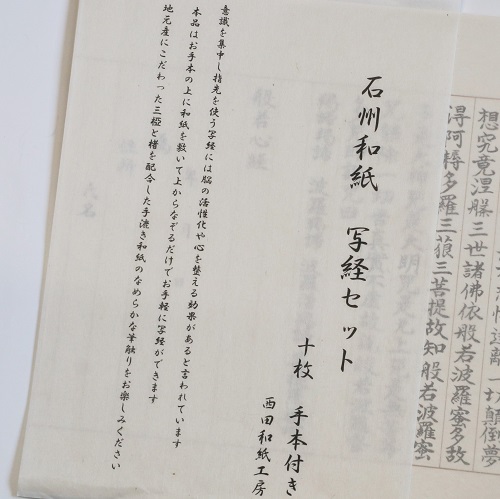 石州和紙　写経セット
十枚　手本付き
西田和紙工房
意識を集中し指先を使う写経には脳の活性化や心を整える効果があると言われています
本品はお手本の上に和紙を敷いて上からなぞるだけでお手軽に写経ができます
地元産にこだわった三椏と楮を配合した手漉き和紙のなめらかな筆触りをお楽しみください
想究竟涅槃三世諸佛依般若波羅蜜多故
得阿耨多羅三藐三菩提故知般若波羅蜜
般若心経